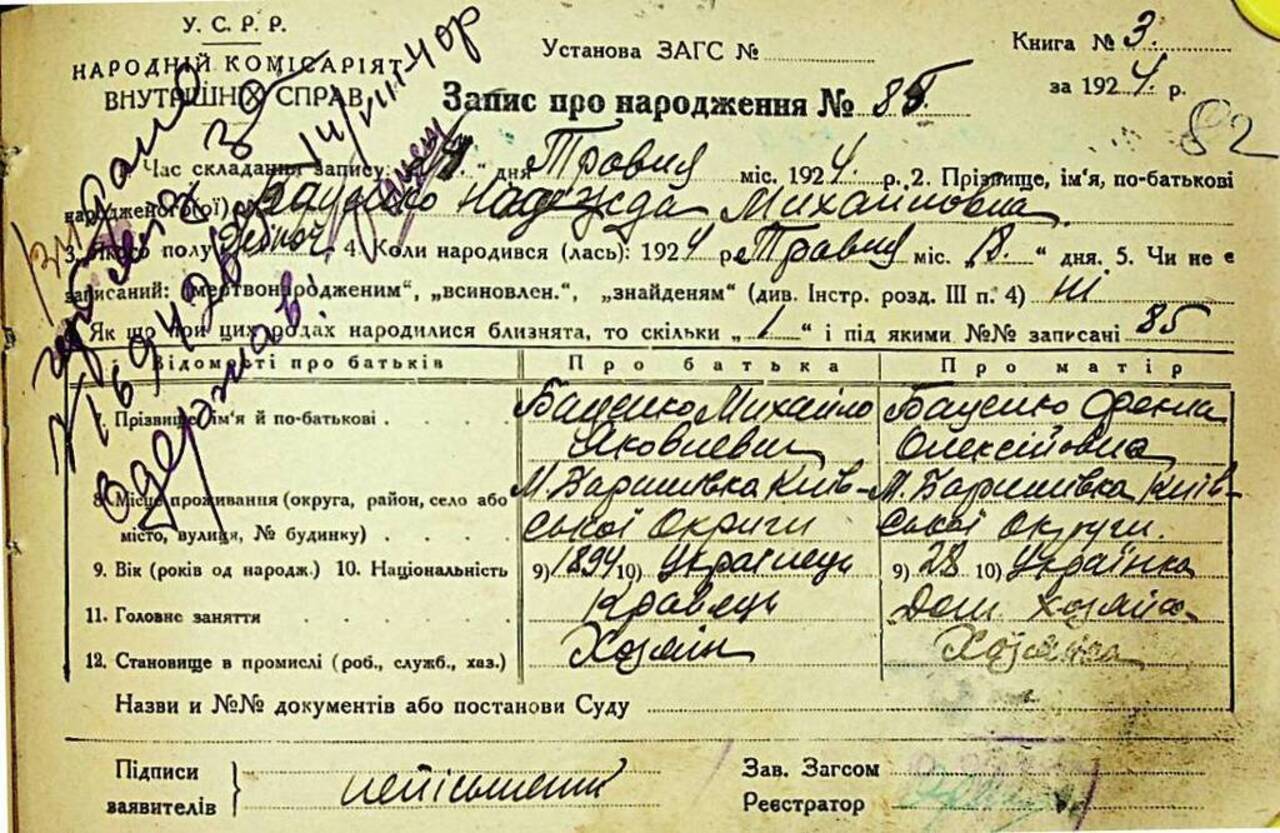 У. С. Р. Р.
НАРОДНІЙ КОМІСАРІЯТ
ВНУТРІШНІХ СПРАВ
Установа ЗАГС №
Книга № 3.
за 1924 р.
82
Запис про народження № 85.
1. Час складання запису: дня Травня міс. 1924. р. 2. Прізвище, ім'я, по-батькові
народженого(ої) Баценко Надежда Михайловна
3. Якого полу 4. Коли народився (лась): 1924 р. Травня міс. „ “ дня. 5. Чи не є
записаний: „мертвонародженим“, „всиновлен.“, „знайденям“ (див. Інстр. розд. III п. 4) ні
Як що при цих родах народилися близнята, то скільки „1“ і під якими №№ записані 85
Відомості про батьків Про батька Про матір
7. Прізвище ім'я й по-батькові Баценко Михайло Баценко Фекла
Яковлевич Олексійовна
8. Місце проживання (округа, район, село або М. Баришівка Київ- М. Баришівка Київ-
місто, вулиця, № будинку) ської Округи ської Округи.
9. Вік (років од народж.) 10. Національність 9) 1894 10) Українець 9) 28 10) Українка
11. Головне заняття Кравець Дом. хозяйс-
12. Становище в промислі (роб., служб., хаз.) Хозяїн Хозяйка
Назви и №№ документів або постанови Суду
Підписи
заявителів
неписьменний
Зав. Загсом
Реєстратор